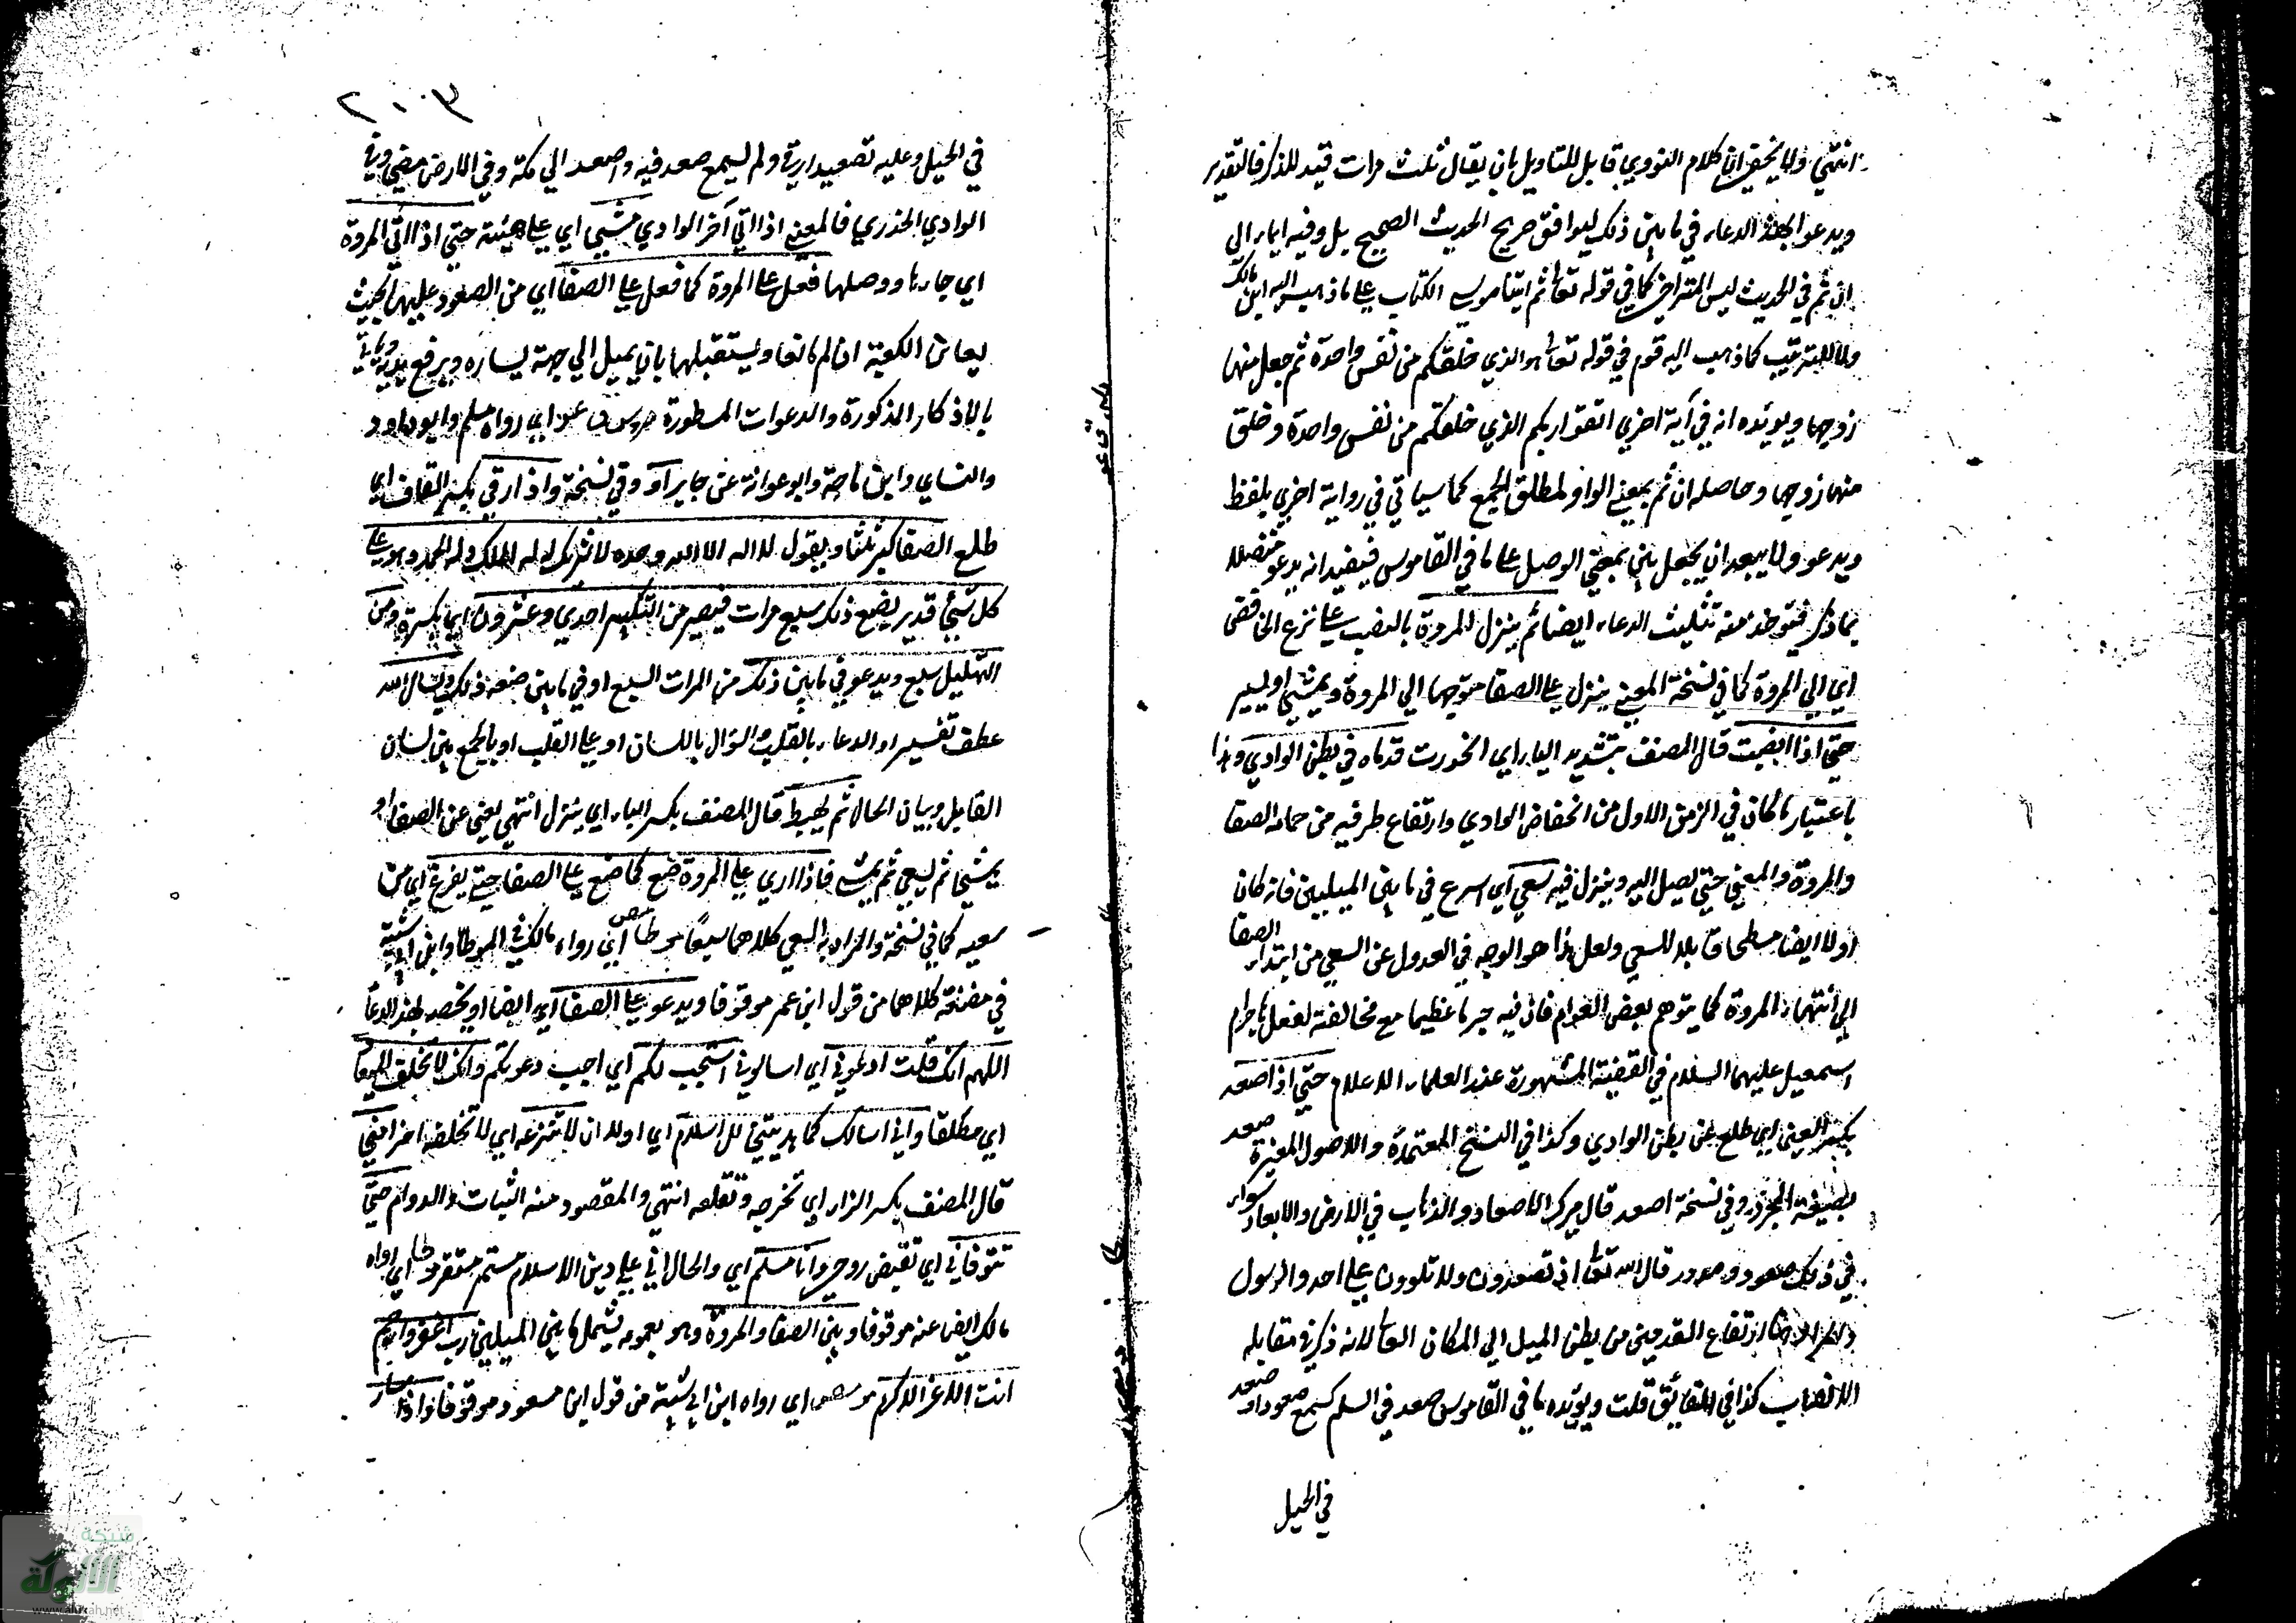 انتهي ولا يخفي ان كلام النووي قابل للتاويل بان يقال ثلث مرات قيد للذكر فالتقدير
ويدعو بهذا الدعاء في ما بين ذلك ليوافق صريح الحديث الصحيح بل وفيه ايماء الي
ان ثم في الحديث ليس للتراخي كما في قوله تعا ثم اتينا موسي الكتاب علي ما ذهب اليه ابن مالك
ولا للترتيب كما ذهب اليه قوم في قوله تعا هو الذي خلقكم من نفس واحدة ثم جعل منها
زوجها ويويده انه في آية اخري اتقوا ربكم الذي خلقكم من نفس واحدة وخلق
منها زوجها وحاصله ان ثم بمعني الواو لمطلق الجمع كما سياتي في رواية اخري بلفظ
ويدعو ولا يبعد ان يجعل بين بمعني الوصل علي ما في القاموس فيفيد انه يدعو متصلا
بما ذكر فتوخذ منه تثليث الدعاء ايضا ثم ينزل المروة بالنصب علي نزع الخافض
اي الي المروة كما في نسخة المعني ينزل علي الصفا متوجها الي المروة ويمشي او يسير
حتي اذا انصبت قال المصنف بتشديد الباء اي انحدرت قدماه في بطن الوادي وهذا
باعتبار ما كان في الزمن الاول من انخفاض الوادي وارتفاع طرفيه من جانب الصفا
والمروة والمعني حتي يصل اليه وينزل فيه سعي اي اسرع في ما بين الميلين فانه كان
اولا ايضا مسطحا قابلا للسعي ولعل هذا هو الوجه في العدول عن السعي من ابتداء الصفا
الي انتهاء المروة كما يتوهم بعض العوام فان فيه حرجا عظيما مع مخالفته لفعل هاجرام
اسمعيل عليهما السلام في القضية المشهورة عند العلماء الاعلام حتي اذا صعد
بكسر العين اي طلع من بطن الوادي وكذا في النسخ المعتمدة والاصول المعتبرة صعد
بصيغة المجرد وفي نسخة اصعد قال ميرك الاصعاد والذهاب في الارض والابعاد سواء
في ذلك صعود وحدور قال الله تعا اذ تصعدون ولا تلوون علي احد والرسول
ارتفاع القدمين من بطن المسيل الي المكان العالي لانه ذكر في مقابله
الانصباب كذا في الحقائق قلت ويويده ما في القاموس صعد في السلم كسمع صعودا وصعد
في الجبل
٢٠٣
في الجبل وعليه تصعيدا رقي ولم يسمع صعد فيه واصعد الي مكة وفي الارض مضي وفي
الوادي انحدر فالمعني اذا اتي آخر الوادي مشي اي علي هيئته حتي اذا اتي المروة
اي جاءها ووصلها فعل علي المروة كما فعل علي الصفا اي من الصعود عليها بحيث
يعاين الكعبة ان لم مانعا ويستقبلها بان يميل الي جهة يساره ويرفع يديه وياتي
بالاذكار المذكورة والدعوات المسطورة م د س ق عو اي رواه مسلم وابو داود
والنساي وابن ماجة وابو عوانة عن جابر او وفي نسخة واذا رقي بكسر القاف اي
طلع الصفا كبر ثلثا ويقول لا اله الا الله وحده لا شريك له له الملك وله الحمد وهو علي
كل شيء قدير يصنع ذلك سبع مرات فيصير من التكبير احدي وعشرون اي بكسرة ومن
التهليل سبع ويدعو في ما بين ذلك من المرات السبع او في ما بين صنعه ذلك ويسال الله
عطف تفسير او الدعاء بالقلب والسؤال باللسان او علي القلب او بالجمع بين لسان
القايل وبيان الحال ثم يهبط قال المصنف بكسر الباء اي ينزل انتهي يعني عن الصفا او
يمشي ثم يسعي ثم يمشي فاذا ارقي علي المروة صنع كما صنع علي الصفا حتي يفرغ اي من
سعيه كما في نسخة والمراد به السعي كلاهما سبعا مو طا مص اي رواه مالك في الموطا وابن ابي شيبة
في مصنفه كلاهما من قول ابن عمر موقوفا ويدعو علي الصفا اي ايضا او يخصه بهذا الدعا
اللهم انك قلت ادعوني اي اسالوني استجب لكم اي اجيب دعوتكم وانك لا تخلف الميعاد
اي مطلقا واني اسالك كما هديتني للاسلام اي اولا ان لا تنزعه اي لا تخلعه اخرا مني
قال المصنف بكسر الزاء اي تخرجه وتقلعه انتهي والمقصود منه الثبات والدوام حتي
تتوفاني اي تقبض روحي وانا مسلم اي والحال اني علي دين الاسلام مستمر مستقر مو طا اي رواه
مالك ايض عنه موقوفا وبين الصفا والمروة وهو بعمومه يشمل ما بين الميلين رب اغفر وارحم
انت الاعز الاكرم مو مص اي رواه ابن ابي شيبة من قول ابن مسعود موقوفا واذا